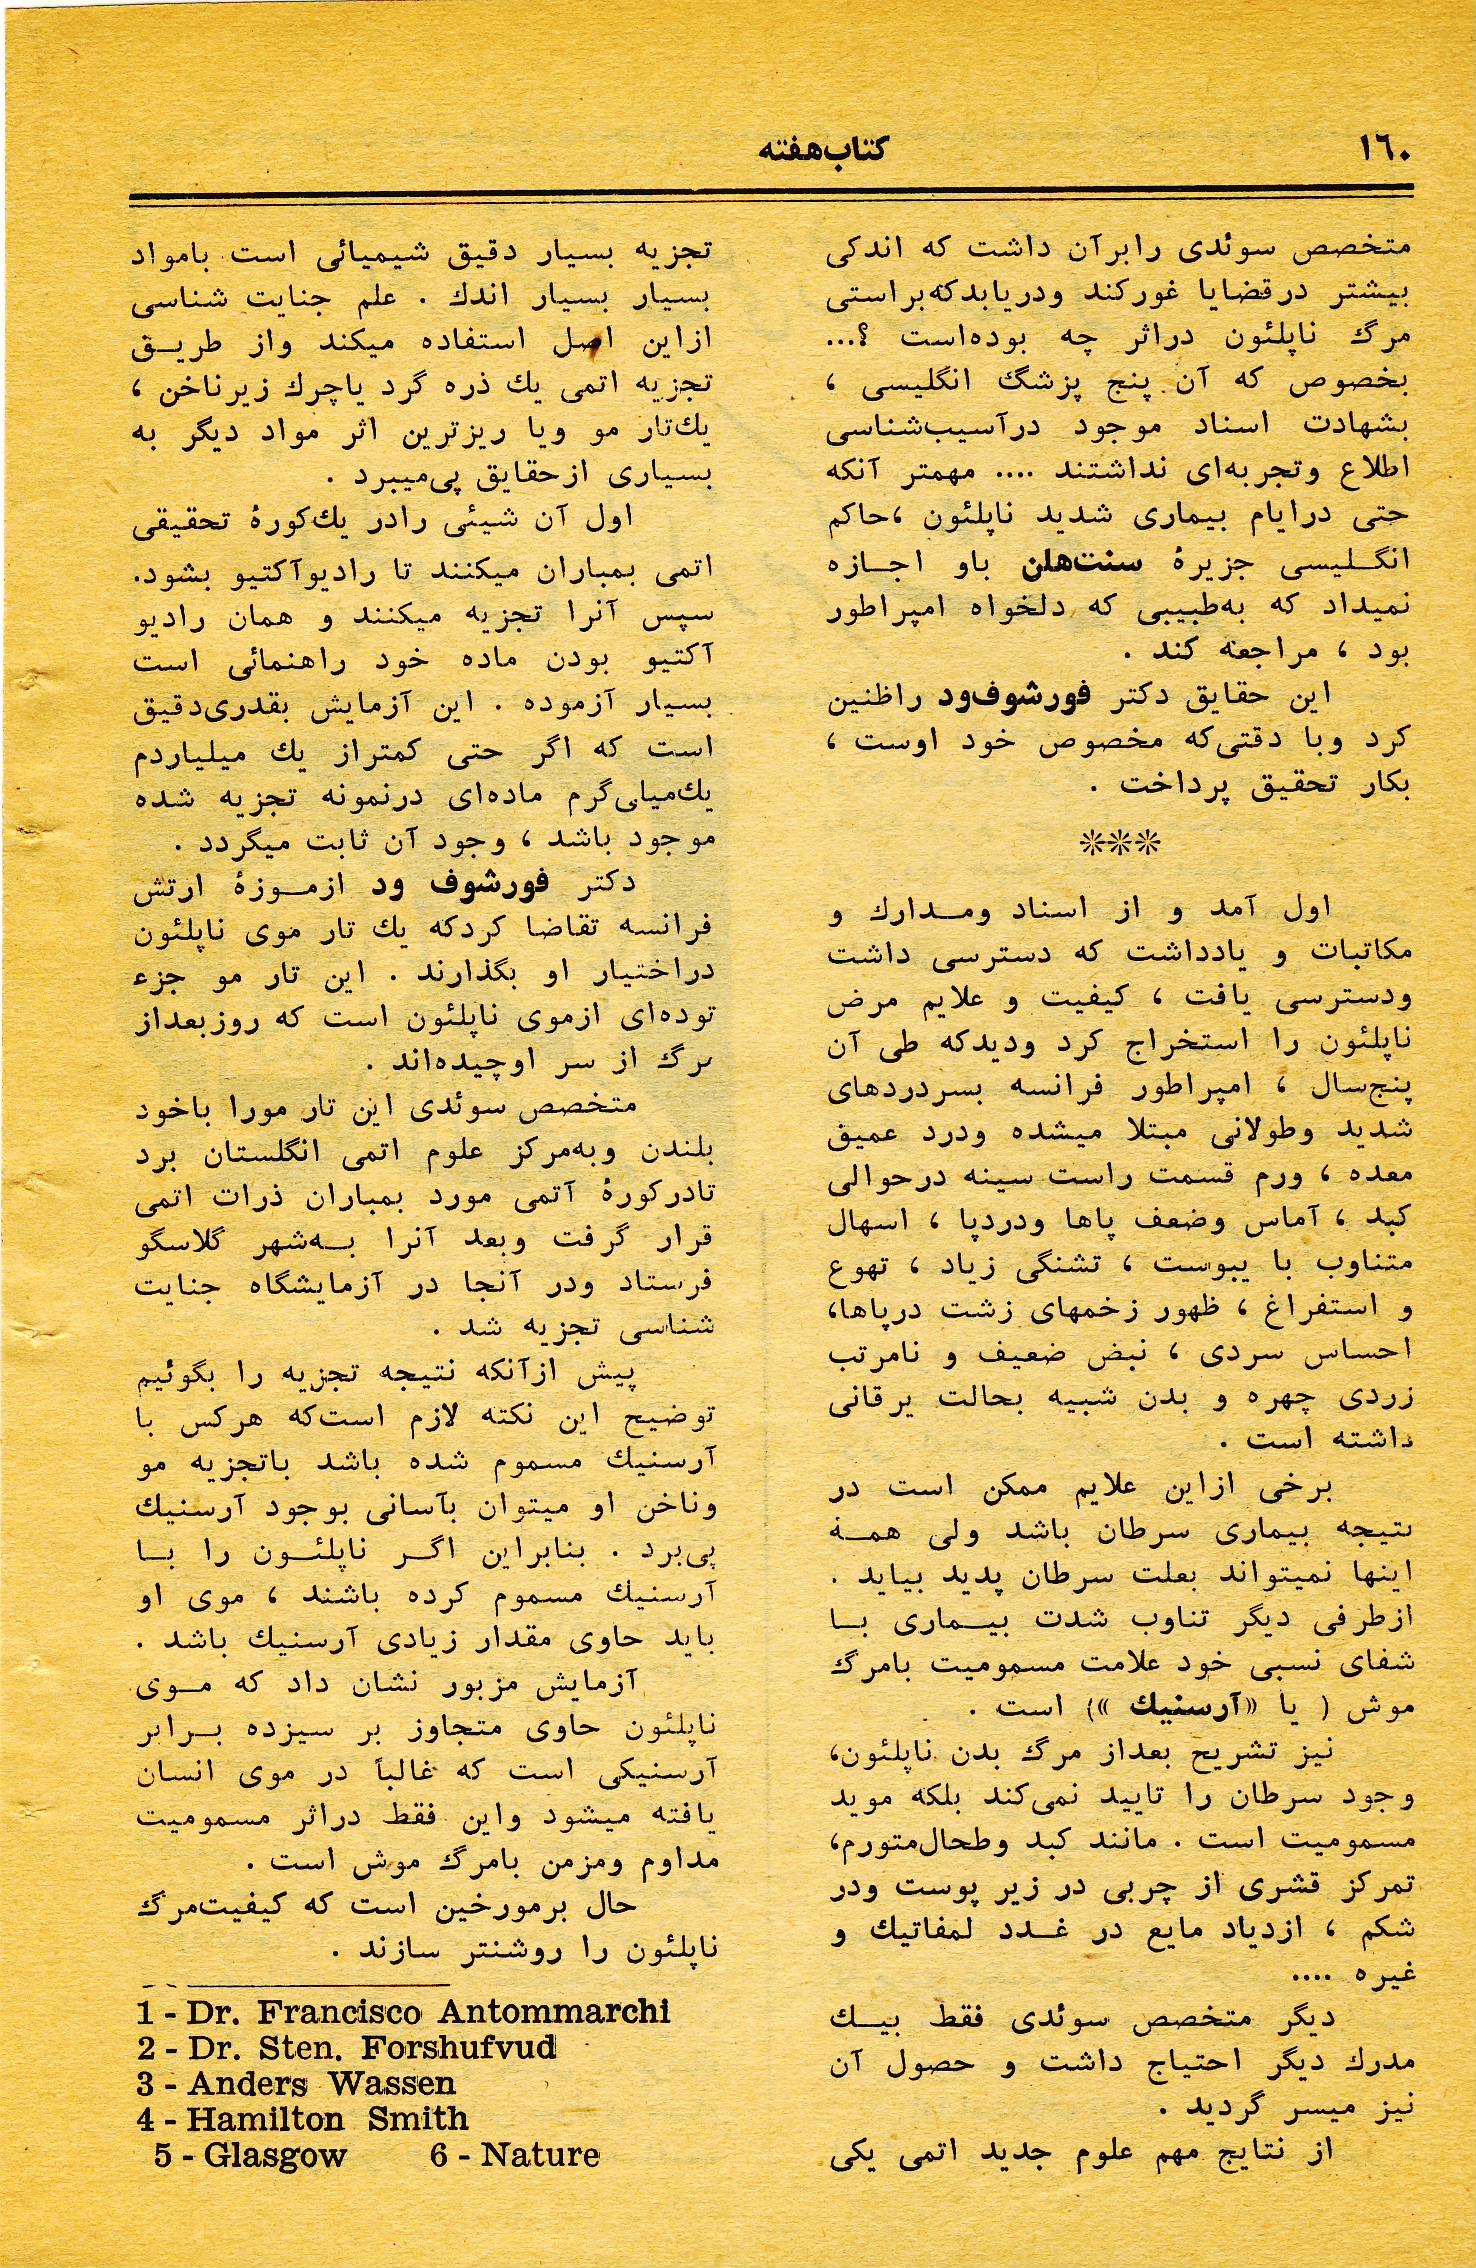 ١٦٠
کتاب‌هفته
متخصص سوئدی رابرآن داشت که اندکی
بیشتر درقضایا غورکند ودریابدکه‌براستی
مرگ ناپلئون دراثر چه بوده‌است ؟...
بخصوص که آن پنج پزشگ انگلیسی ،
بشهادت اسناد موجود درآسیب‌شناسی
اطلاع وتجربه‌ای نداشتند .... مهمتر آنکه
حتی درایام بیماری شدید ناپلئون ،حاکم
انگلیسی جزیرهٔ سنت‌هلن باو اجازه
نمیداد که به‌طبیبی که دلخواه امپراطور
بود ، مراجعه کند .
این حقایق دکتر فورشوف‌ود راظنین
کرد وبا دقتی‌که مخصوص خود اوست ،
بکار تحقیق پرداخت .
***
اول آمد و از اسناد ومدارك و
مکاتبات و یادداشت که دسترسی داشت
ودسترسی یافت ، کیفیت و علایم مرض
ناپلئون را استخراج کرد ودیدکه طی آن
پنج‌سال ، امپراطور فرانسه بسردردهای
شدید وطولانی مبتلا میشده ودرد عمیق
معده ، ورم قسمت راست سینه درحوالی
کبد ، آماس وضعف پاها ودردپا ، اسهال
متناوب با یبوست ، تشنگی زیاد ، تهوع
و استفراغ ، ظهور زخمهای زشت درپاها،
احساس سردی ، نبض ضعیف و نامرتب
زردی چهره و بدن شبیه بحالت یرقانی
داشته است .
برخی ازاین علایم ممکن است در
نتیجه بیماری سرطان باشد ولی همهٔ
اینها نمیتواند بعلت سرطان پدید بیاید .
ازطرفی دیگر تناوب شدت بیماری با
شفای نسبی خود علامت مسمومیت بامرگ
موش ( یا «آرسنیك ») است .
نیز تشریح بعداز مرگ بدن ناپلئون،
وجود سرطان را تایید نمی‌کند بلکه موید
مسمومیت است . مانند کبد وطحال‌متورم،
تمرکز قشری از چربی در زیر پوست ودر
شکم ، ازدیاد مایع در غدد لمفاتیك و
غیره ....
دیگر متخصص سوئدی فقط بیك
مدرك دیگر احتیاج داشت و حصول آن
نیز میسر گردید .
از نتایج مهم علوم جدید اتمی یکی
تجزیه بسیار دقیق شیمیائی است بامواد
بسیار بسیار اندك . علم جنایت شناسی
ازاین اصل استفاده میکند واز طریق
تجزیه اتمی یك ذره گرد یاچرك زیرناخن ،
یك‌تار مو ویا ریزترین اثر مواد دیگر به
بسیاری ازحقایق پی‌میبرد .
اول آن شیئی رادر یك‌کورهٔ تحقیقی
اتمی بمباران میکنند تا رادیوآکتیو بشود.
سپس آنرا تجزیه میکنند و همان رادیو
آکتیو بودن ماده خود راهنمائی است
بسیار آزموده . این آزمایش بقدری‌دقیق
است که اگر حتی کمتراز یك میلیاردم
یك‌میلی‌گرم ماده‌ای درنمونه تجزیه شده
موجود باشد ، وجود آن ثابت میگردد .
دکتر فورشوف ود ازموزهٔ ارتش
فرانسه تقاضا کردکه یك تار موی ناپلئون
دراختیار او بگذارند . این تار مو جزء
توده‌ای ازموی ناپلئون است که روزبعداز
مرگ از سر اوچیده‌اند .
متخصص سوئدی این تار مورا باخود
بلندن وبه‌مرکز علوم اتمی انگلستان برد
تادرکورهٔ آتمی مورد بمباران ذرات اتمی
قرار گرفت وبعد آنرا به‌شهر گلاسگو
فرستاد ودر آنجا در آزمایشگاه جنایت
شناسی تجزیه شد .
پیش ازآنکه نتیجه تجزیه را بگوئیم
توضیح این نکته لازم است‌که هرکس با
آرسنیك مسموم شده باشد باتجزیه مو
وناخن او میتوان بآسانی بوجود آرسنیك
پی‌برد . بنابراین اگر ناپلئون را با
آرسنیك مسموم کرده باشند ، موی او
باید حاوی مقدار زیادی آرسنیك باشد .
آزمایش مزبور نشان داد که موی
ناپلئون حاوی متجاوز بر سیزده برابر
آرسنیکی است که غالباً در موی انسان
یافته میشود واین فقط دراثر مسمومیت
مداوم ومزمن بامرگ موش است .
حال برمورخین است که کیفیت‌مرگ
ناپلئون را روشنتر سازند .
1 - Dr. Francisco Antommarchi
2 - Dr. Sten. Forshufvud
3 - Anders Wassen
4 - Hamilton Smith
5 - Glasgow 6 - Nature